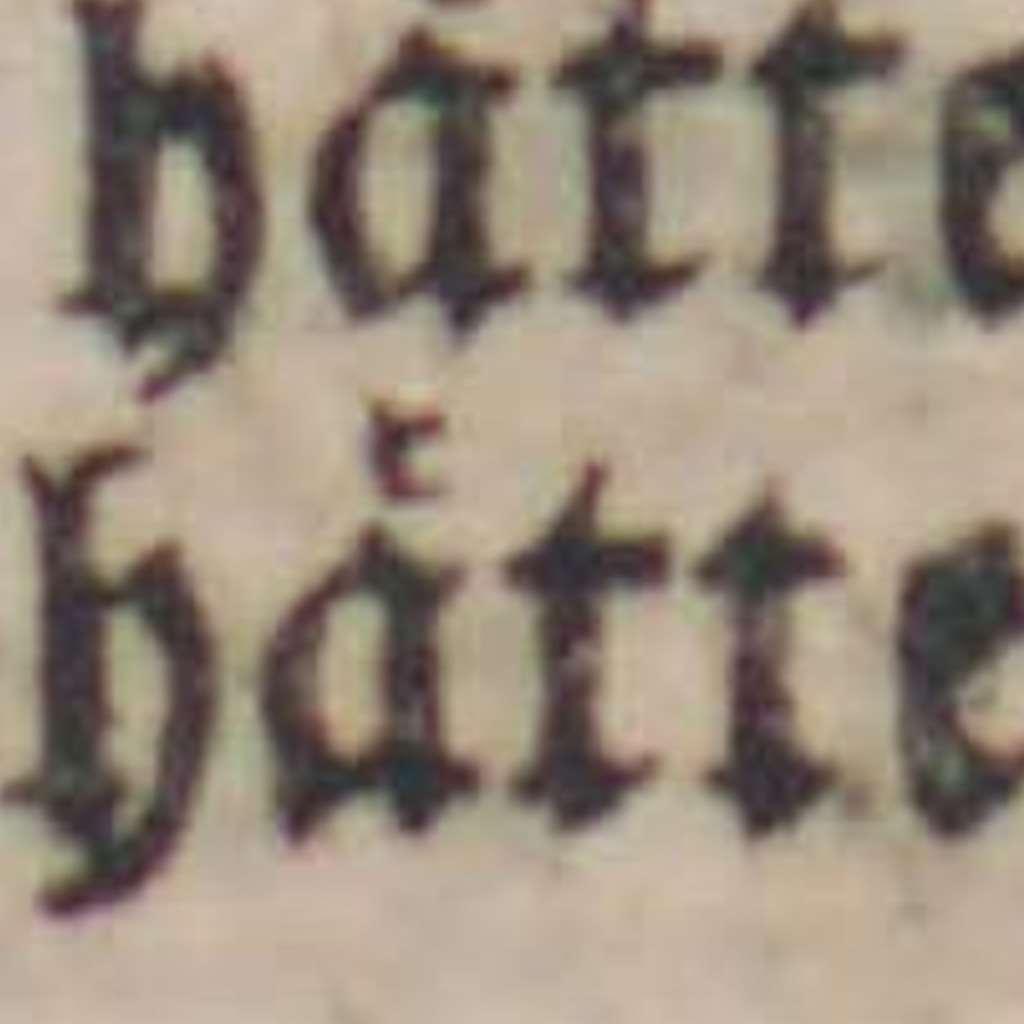 haͤtte
haͤtte